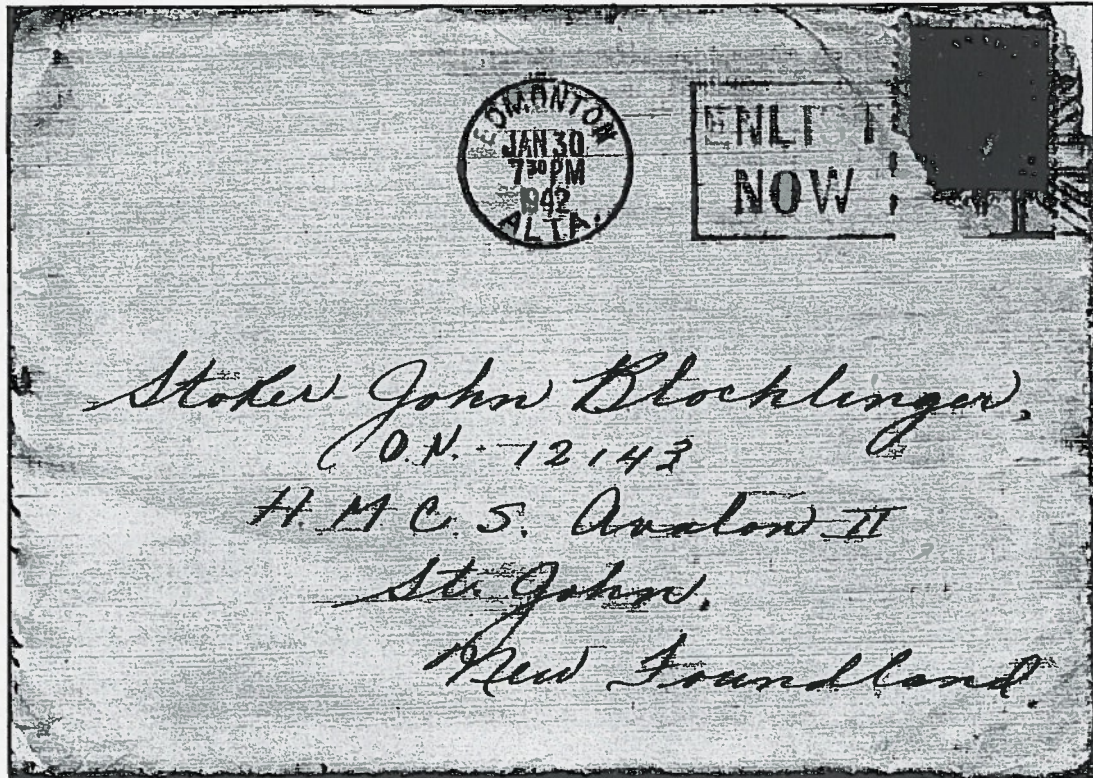 EDMONTON
JAN 30
7 30 PM
1942
ALTA.
ENLIST
NOW
Stoker John Blocklinger,
O.N. - 12143
H. M. C. S. Avalon II
St. John,
New Foundland.